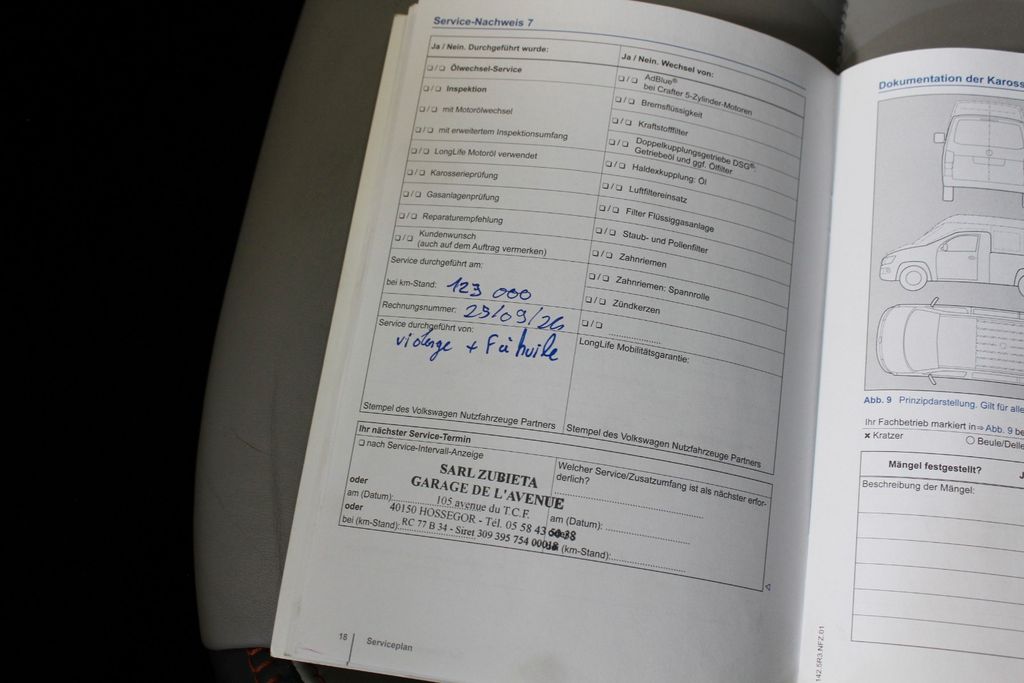 Service-Nachweis 7
Ja / Nein. Durchgeführt wurde:
❏ / ❏ Ölwechsel-Service
❏ / ❏ Inspektion
❏ / ❏ mit Motorölwechsel
❏ / ❏ mit erweitertem Inspektionsumfang
❏ / ❏ LongLife Motoröl verwendet
❏ / ❏ Karosserieprüfung
❏ / ❏ Gasanlagenprüfung
❏ / ❏ Reparaturempfehlung
❏ / ❏ Kundenwunsch
(auch auf dem Auftrag vermerken)
Service durchgeführt am:
bei km-Stand: 123 000
Rechnungsnummer: 25/09/26
Service durchgeführt von:
vidange + F à huile
Stempel des Volkswagen Nutzfahrzeuge Partners
Ja / Nein. Wechsel von:
❏ / ❏ AdBlue®
bei Crafter 5-Zylinder-Motoren
❏ / ❏ Bremsflüssigkeit
❏ / ❏ Kraftstofffilter
❏ / ❏ Doppelkupplungsgetriebe DSG®:
Getriebeöl und ggf. Ölfilter
❏ / ❏ Haldexkupplung: Öl
❏ / ❏ Luftfiltereinsatz
❏ / ❏ Filter Flüssiggasanlage
❏ / ❏ Staub- und Pollenfilter
❏ / ❏ Zahnriemen
❏ / ❏ Zahnriemen: Spannrolle
❏ / ❏ Zündkerzen
❏ / ❏ ....................
LongLife Mobilitätsgarantie:
Stempel des Volkswagen Nutzfahrzeuge Partners
Ihr nächster Service-Termin
❏ nach Service-Intervall-Anzeige
oder
am (Datum):
oder
bei (km-Stand):
SARL ZUBIETA
GARAGE DE L'AVENUE
105 avenue du T.C.F.
40150 HOSSEGOR - Tél. 05 58 43 50 38
RC 77 B 34 - Siret 309 395 754 00018
Welcher Service/Zusatzumfang ist als nächster erfor-
derlich?
am (Datum):
oder
(km-Stand):
18
Serviceplan
Dokumentation der Kaross
Abb. 9 Prinzipdarstellung. Gilt für alle
Ihr Fachbetrieb markiert in⇒Abb. 9 be
× Kratzer
○ Beule/Delle
Mängel festgestellt?
J
Beschreibung der Mängel:
142.5R3.NFZ.01